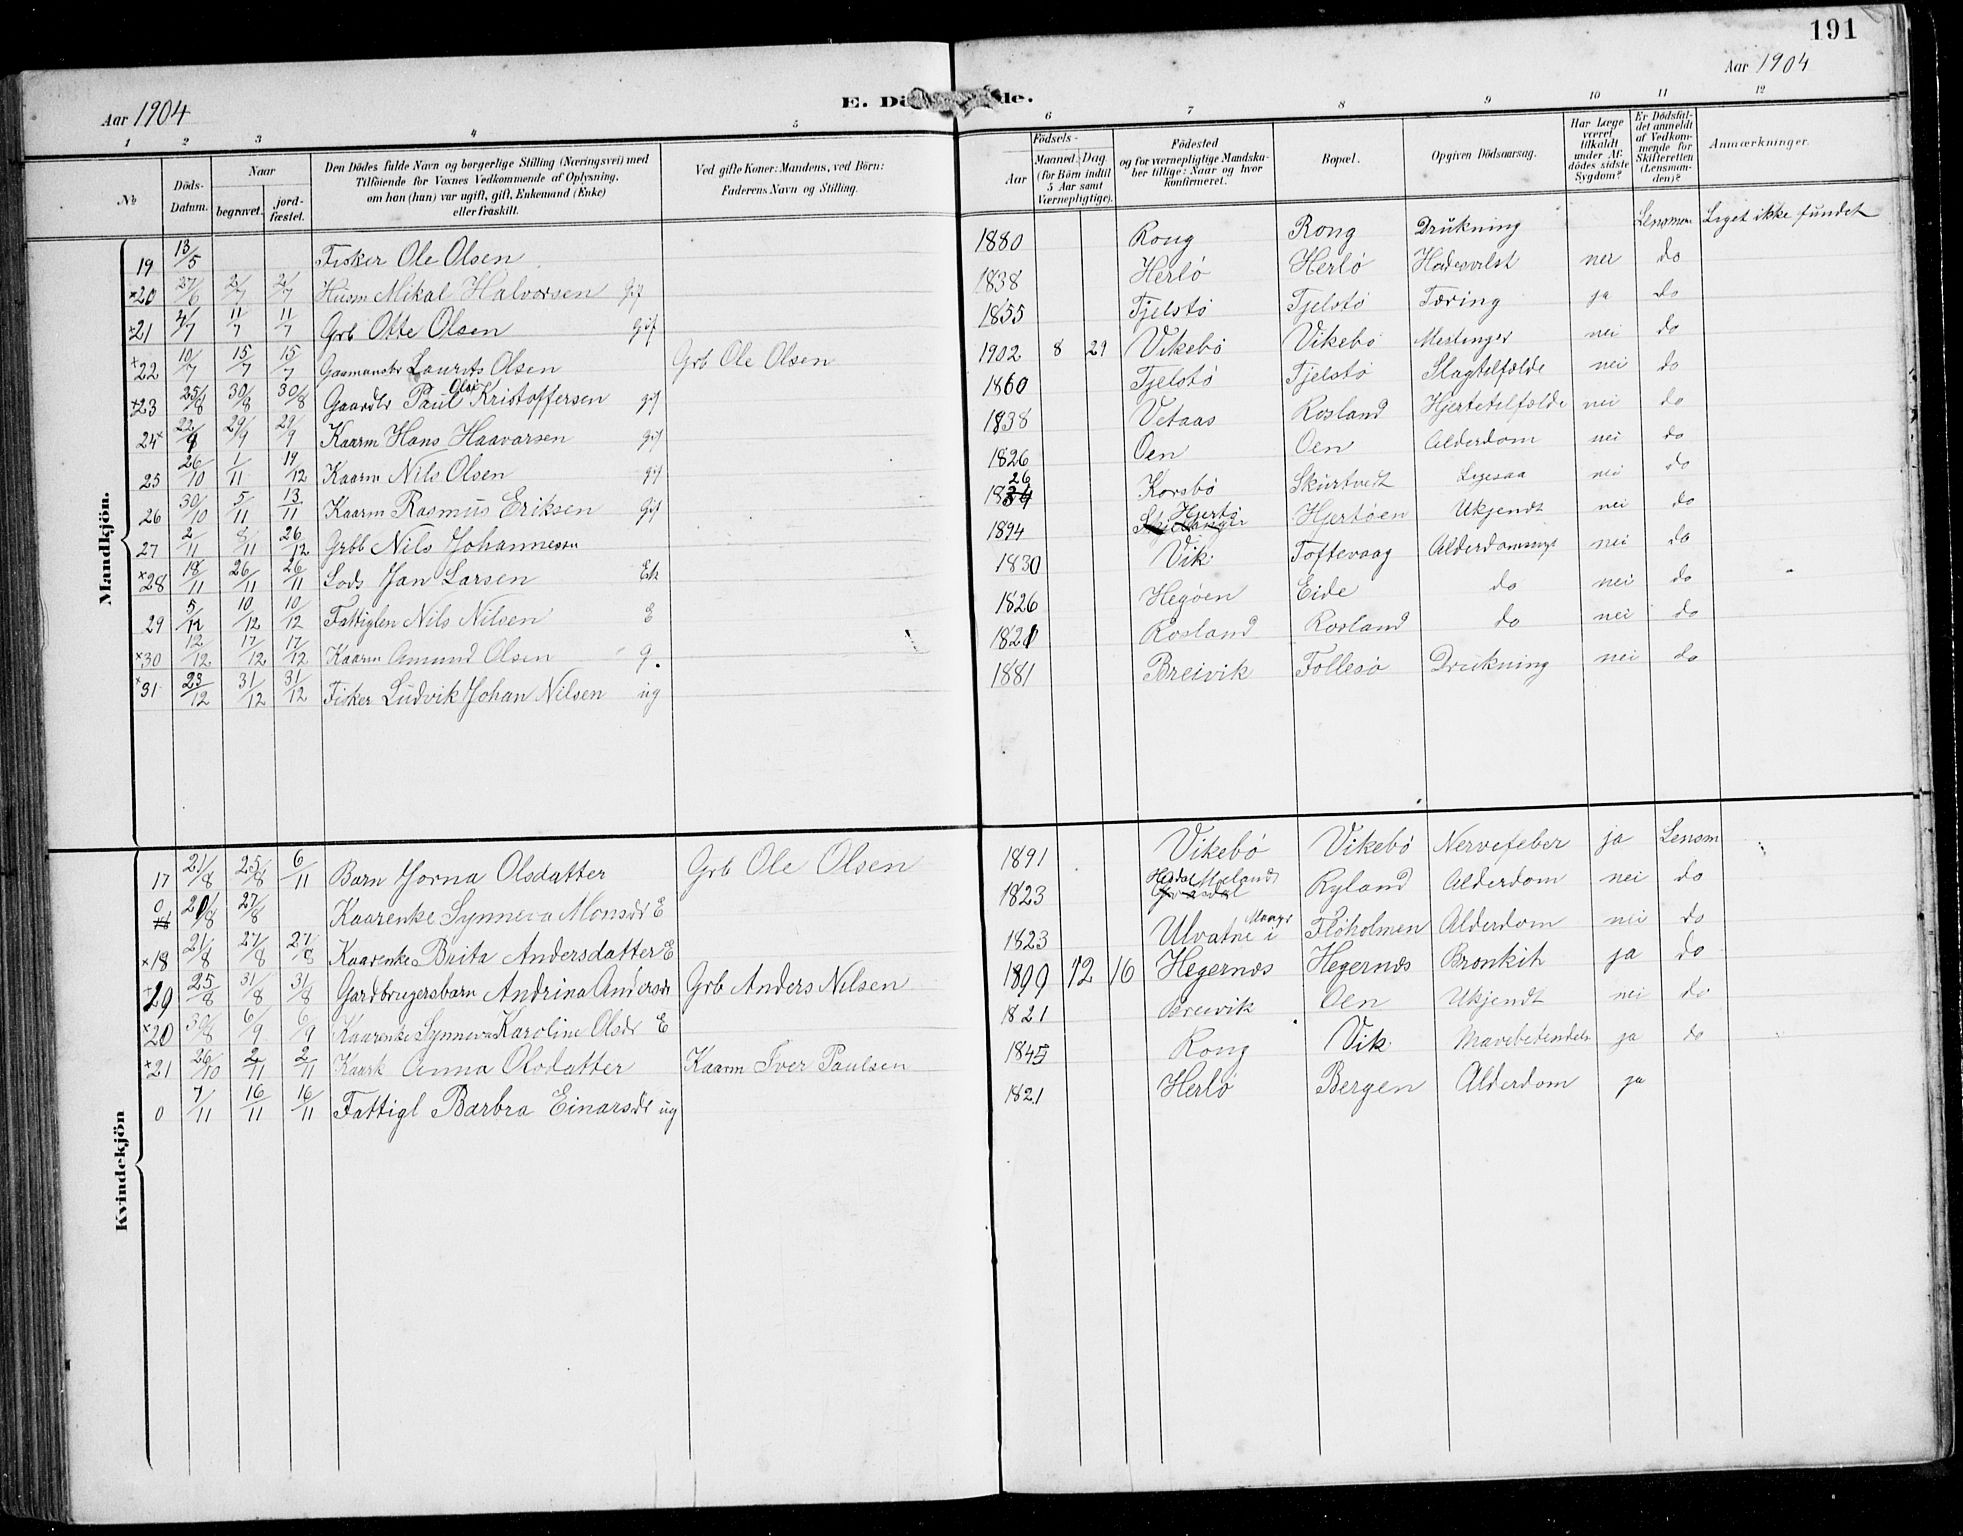 191
Aar 1904
Aar 1904
E. Dö de.
1 2 3 4 5 6 7 8 9 10 11 12
№
Döds-Datum.
Naar
begravet.
jord-fæstet.
Den Dödes fulde Navn og borgerlige Stilling (Næringsvei) med
Tilföiende for Voxnes Vedkommende af Oplysning,
om han (hun) var ugift, gift, Enkemand (Enke)
eller fraskilt.
Ved gifte Koner: Mandens, ved Börn:
Faderens Navn og Stilling.
Födsels-
Aar
Maaned. Dag.
(for Börn indtil
5 Aar samt
Værnepligtige).
Födested
og for værnepligtige Mandska-
ber tillige: Naar og hvor
konfirmeret.
Bopæl.
Opgiven Dödsaarsag.
Har Læge
været
tilkaldt
under Af-
dödes sidste
Sygdom?
Er Dödsfal-
det anmeldt
af Vedkom-
mende for
Skifteretten
(Lensman-
den)?
Anmærkninger.
Mandkjön.
19 13/5 Fisker Ole Olsen 1880 Rong Rong Drukning Lensman Liget ikke fundet
×20 27/6 2/7 2/7 Husm Mikal Halvorsen Gift 1838 Herlö Herlö nei do
×21 4/7 11/7 11/7 Grb Otte Olsen gift 1855 Tjelstö Tjelstö Tæring ja do
×22 10/7 15/7 15/7 Laurits Olsen Grb Ole Olsen 1902 8 29 Vikebö Vikebö Meslinger nei do
×23 25/8 30/8 30/8 Gaardbr Paul Olai Kristoffersen gif 1860 Tjelstö Tjelstö Slagtilfælde nei do
24× 22/9 29/9 29/9 Kaarm Hans Haavarsen gift 1838 Vetaas Rosland Hjertetilfælde nei do
25 26/10 1/11 19/12 Kaarm Nils Olsen gif 1826 Oen Oen Alderdom nei do
26 30/10 5/11 13/11 Kaarm Rasmus Eriksen Gif 1826 Korsbö Skurtveit nei do
27 2/11 8/11 26/12 Grbb Nils Johannesen 1894 Hjertö Hjertöen Ukjendt nei do
×28 18/11 26/11 26/11 Lods Jan Larsen Ek 1830 Vik Toftevaag nei do
29 5/12 10/12 10/12 Fattiglem Nils Nilsen E 1826 Hegöen Eide do nei do
×30 12/12 17/12 17/12 Kaarm Amund Olsen g. 1821 Rosland Rosland do nei do
×31 23/12 31/12 31/12 Fisker Ludvik Johan Nilsen ug 1881 Breivik Follesö Drukning nei do
Kvindekjön
17 21/8 25/8 6/11 Barn Jorna Olsdatter Grb Ole Olsen 1891 Vikebö Vikebö Nervefeber ja Lensm
0 20/8 27/8 Kaarenke Synneva Monsdr E 1823 Meland Ryland Alderdom nei do
×18 21/8 27/8 27/8 Kaarenke Brita Andersdatter E 1823 Ulvatne i Flöholmen Alderdom nei do
×19 25/8 31/8 31/8 Gardbrugersbarn Andrina Andersdr Grb Anders Nilsen 1899 12 16 Hegernæs Hegernæs Bronkit ja do
×20 30/8 6/9 6/9 Kaarenke Synneva Karoline Olsdr E 1821 Breivik Oen Ukjendt nei do
×21 26/10 2/11 2/11 Kaark Anna Olsdatter Kaarm Iver Paulsen 1845 Rong Vik Mavebetendelse ja do
0 7/11 16/11 16/11 Fattigl Barbra Einarsdr ug 1821 Herlö Bergen Alderdom ja